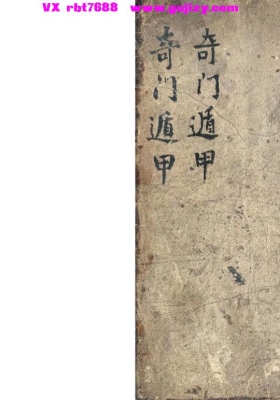 VX rbt7688 www.gojizy.com
奇门遁甲
奇门遁甲